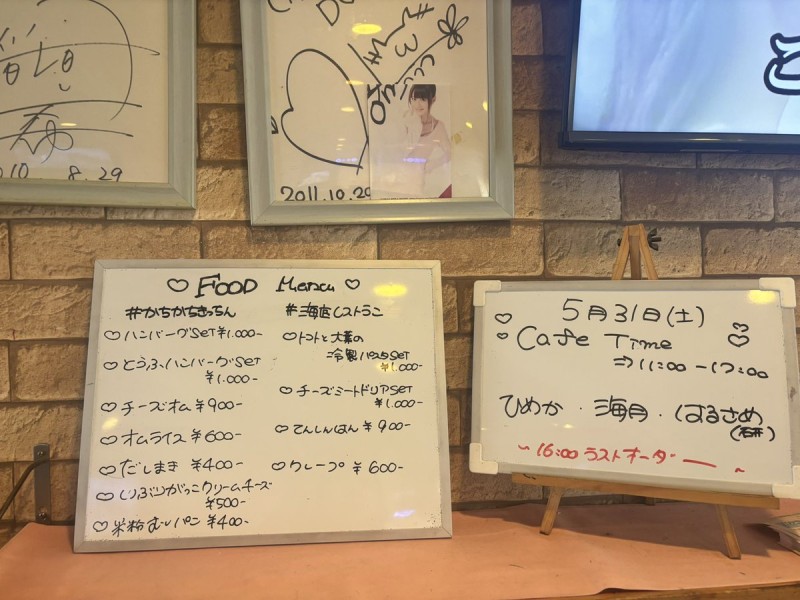 2010 8.29
2011.10.29
♡ FOOD Menu ♡
#かちかちきっちん
♡ ハンバーグSET ¥1.000-
♡ とうふハンバーグSET
¥1.000-
♡ チーズオム ¥900-
♡ オムライス ¥600-
♡ だしまき ¥400-
♡ いぶりがっこクリームチーズ
¥500-
♡ 米粉むしパン ¥400-
#海底レストラン
♡ トマトと大葉の
冷製パスタSET
¥1.000-
♡ チーズミートドリアSET
¥1.000-
♡ てんしんはん ¥900-
♡ クレープ ¥600-
5月31日(土)
Cafe Time
⇒11:00-17:00
ひめか・海月・はるさめ
(石井)
~16:00 ラストオーダー ~